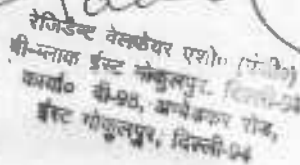 रेजिडेन्ट वेलफेयर एशो० (पंजी०)
बी-ब्लाक ईस्ट गोकुलपुर, दिल्ली-94
कार्या० बी-98, अम्बेडकर रोड,
ईस्ट गोकुलपुर, दिल्ली-94